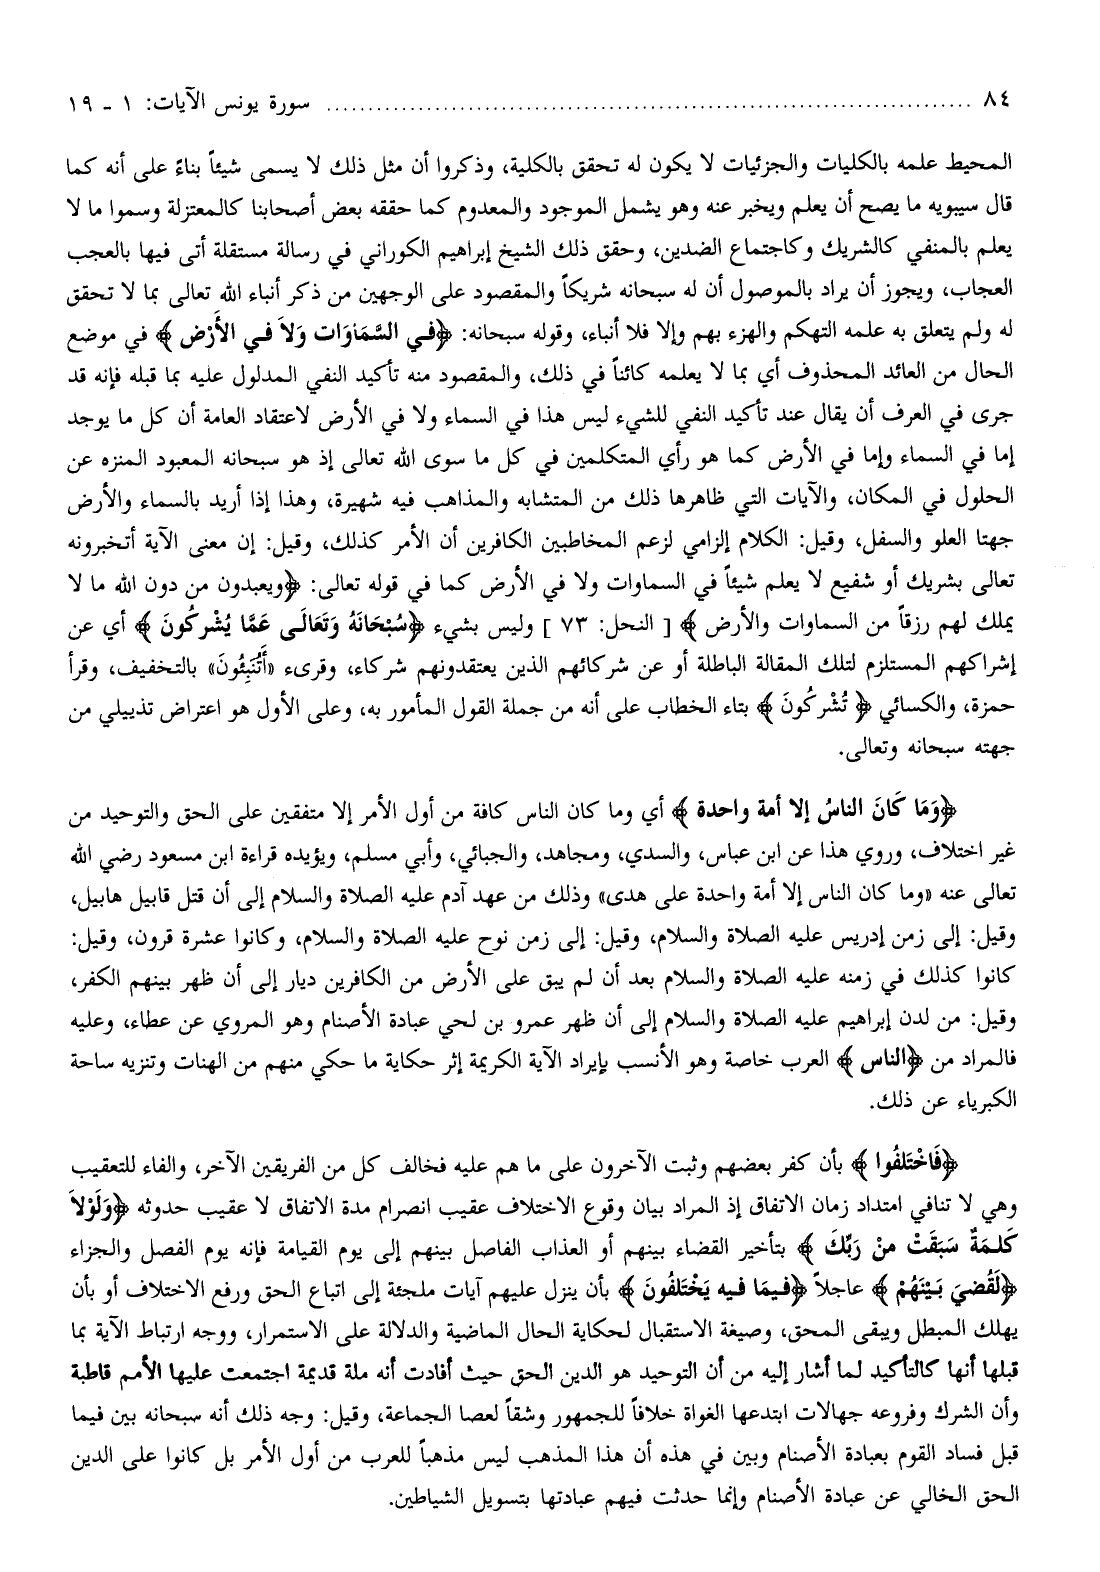 ٨٤ ........................................................................ سورة يونس الآيات: ١ - ١٩
المحيط علمه بالكليات والجزئيات لا يكون له تحقق بالكلية، وذكروا أن مثل ذلك لا يسمى شيئاً بناءً على أنه كما
قال سيبويه ما يصح أن يعلم ويخبر عنه وهو يشمل الموجود والمعدوم كما حققه بعض أصحابنا كالمعتزلة وسموا ما لا
يعلم بالمنفي كالشريك وكاجتماع الضدين، وحقق ذلك الشيخ إبراهيم الكوراني في رسالة مستقلة أتى فيها بالعجب
العجاب، ويجوز أن يراد بالموصول أن له سبحانه شريكاً والمقصود على الوجهين من ذكر أنباء الله تعالى بما لا تحقق
له ولم يتعلق به علمه التهكم والهزء بهم وإلا فلا أنباء، وقوله سبحانه: ﴿فِي السَّمَاوَات وَلاَ فِي الأَرْض﴾ في موضع
الحال من العائد المحذوف أي بما لا يعلمه كائناً في ذلك، والمقصود منه تأكيد النفي المدلول عليه بما قبله فإنه قد
جرى في العرف أن يقال عند تأكيد النفي للشيء ليس هذا في السماء ولا في الأرض لاعتقاد العامة أن كل ما يوجد
إما في السماء وإما في الأرض كما هو رأي المتكلمين في كل ما سوى الله تعالى إذ هو سبحانه المعبود المنزه عن
الحلول في المكان، والآيات التي ظاهرها ذلك من المتشابه والمذاهب فيه شهيرة، وهذا إذا أريد بالسماء والأرض
جهتا العلو والسفل، وقيل: الكلام إلزامي لزعم المخاطبين الكافرين أن الأمر كذلك، وقيل: إن معنى الآية أتخبرونه
تعالى بشريك أو شفيع لا يعلم شيئاً في السماوات ولا في الأرض كما في قوله تعالى: ﴿ويعبدون من دون الله ما لا
يملك لهم رزقاً من السماوات والأرض﴾ [ النحل: ٧٣ ] وليس بشيء ﴿سُبْحَانَهُ وَتَعَالَى عَمَّا يُشْركُونَ﴾ أي عن
إشراكهم المستلزم لتلك المقالة الباطلة أو عن شركائهم الذين يعتقدونهم شركاء، وقرىء «أَتُنبِئُونَ» بالتخفيف، وقرأ
حمزة، والكسائي ﴿تُشْركُونَ﴾ بتاء الخطاب على أنه من جملة القول المأمور به، وعلى الأول هو اعتراض تذييلي من
جهته سبحانه وتعالى.
﴿وَمَا كَانَ الناسُ إلا أمة واحدة﴾ أي وما كان الناس كافة من أول الأمر إلا متفقين على الحق والتوحيد من
غير اختلاف، وروي هذا عن ابن عباس، والسدي، ومجاهد، والجبائي، وأبي مسلم، ويؤيده قراءة ابن مسعود رضي الله
تعالى عنه «وما كان الناس إلا أمة واحدة على هدى» وذلك من عهد آدم عليه الصلاة والسلام إلى أن قتل قابيل هابيل،
وقيل: إلى زمن إدريس عليه الصلاة والسلام، وقيل: إلى زمن نوح عليه الصلاة والسلام، وكانوا عشرة قرون، وقيل:
كانوا كذلك في زمنه عليه الصلاة والسلام بعد أن لم يبق على الأرض من الكافرين ديار إلى أن ظهر بينهم الكفر،
وقيل: من لدن إبراهيم عليه الصلاة والسلام إلى أن ظهر عمرو بن لحي عبادة الأصنام وهو المروي عن عطاء، وعليه
فالمراد من ﴿الناس﴾ العرب خاصة وهو الأنسب بإيراد الآية الكريمة إثر حكاية ما حكي منهم من الهنات وتنزيه ساحة
الكبرياء عن ذلك.
﴿فَاخْتَلَفُوا﴾ بأن كفر بعضهم وثبت الآخرون على ما هم عليه فخالف كل من الفريقين الآخر، والفاء للتعقيب
وهي لا تنافي امتداد زمان الاتفاق إذ المراد بيان وقوع الاختلاف عقيب انصرام مدة الاتفاق لا عقيب حدوثه ﴿وَلَوْلاَ
كَلمَةٌ سَبَقَتْ منْ رَبِّكَ﴾ بتأخير القضاء بينهم أو العذاب الفاصل بينهم إلى يوم القيامة فإنه يوم الفصل والجزاء
﴿لَقُضيَ بَيْنَهُمْ﴾ عاجلاً ﴿فيمَا فيه يَخْتَلفُونَ﴾ بأن ينزل عليهم آيات ملجئة إلى اتباع الحق ورفع الاختلاف أو بأن
يهلك المبطل ويبقى المحق، وصيغة الاستقبال لحكاية الحال الماضية والدلالة على الاستمرار، ووجه ارتباط الآية بما
قبلها أنها كالتأكيد لما أشار إليه من أن التوحيد هو الدين الحق حيث أفادت أنه ملة قديمة اجتمعت عليها الأمم قاطبة
وأن الشرك وفروعه جهالات ابتدعها الغواة خلافاً للجمهور وشقاً لعصا الجماعة، وقيل: وجه ذلك أنه سبحانه بين فيما
قبل فساد القوم بعبادة الأصنام وبين في هذه أن هذا المذهب ليس مذهباً للعرب من أول الأمر بل كانوا على الدين
الحق الخالي عن عبادة الأصنام وإنما حدثت فيهم عبادتها بتسويل الشياطين.